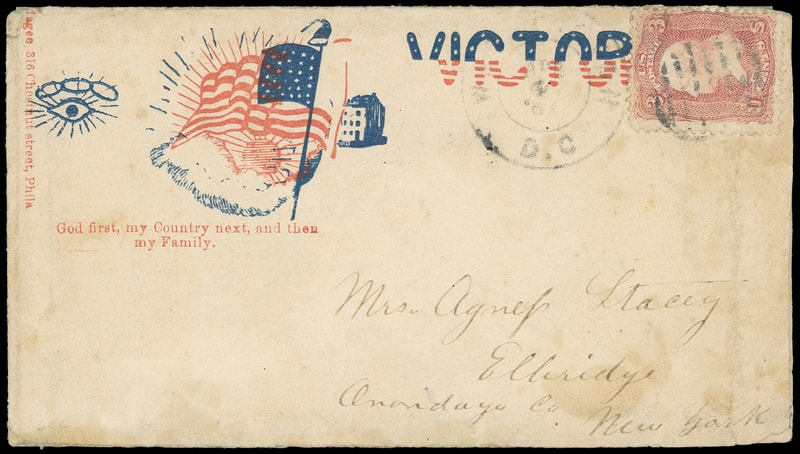 VICTOR
3
D.C
316 Chestnut street, Phila
God first, my Country next, and then
my Family.
Mrs. Agneſs Stacey
Elbridge
Onondaga Co
New York